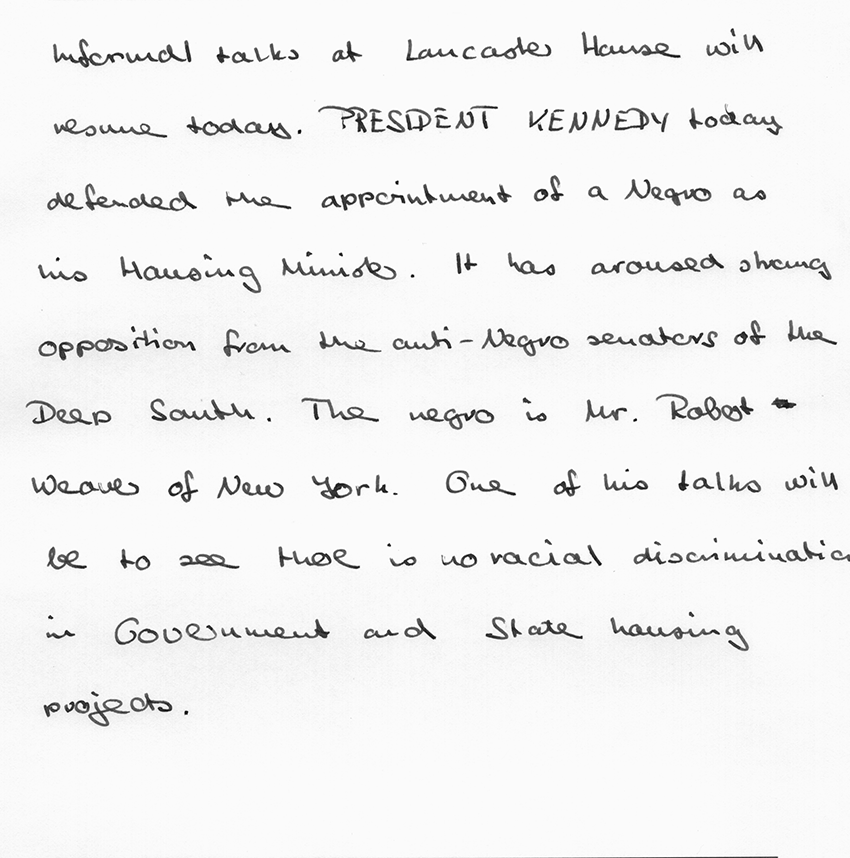 Informal talks at Lancaster House will
resume today. PRESIDENT KENNEDY today
defended the appointment of a Negro as
his Housing Minister. It has aroused strong
opposition from the anti-Negro senators of the
Deep South. The negro is Mr. Robert
Weaver of New York. One of his talks will
be to see there is no racial discriminatio
in Government and State housing
projects.